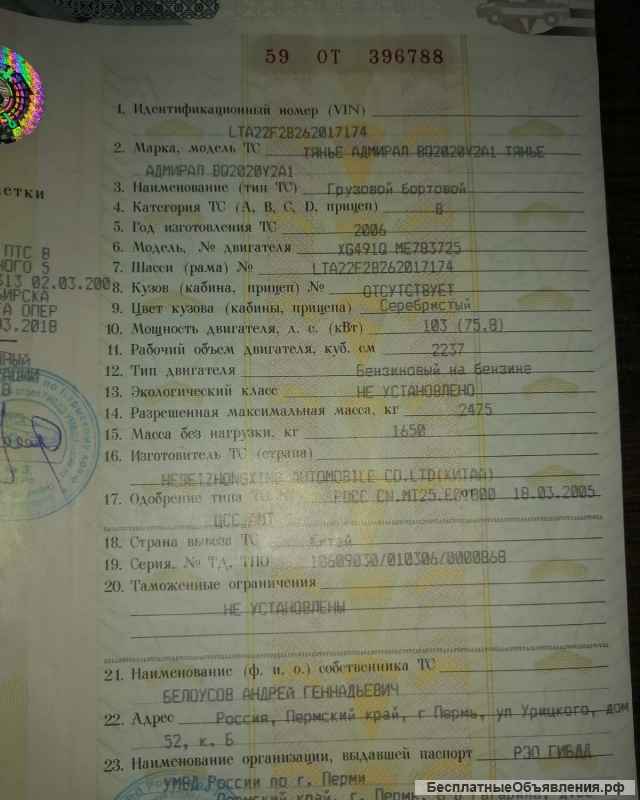 59 ОТ 396788
1. Идентификационный номер (VIN)
LTA22F2B262017174
2. Марка, модель ТС ТЯНЬЕ АДМИРАЛ BQ2020Y2A1 ТЯНЬЕ
АДМИРАЛ BQ2020Y2A1
3. Наименование (тип ТС) Грузовой Бортовой
4. Категория ТС (A, B, C, D, прицеп) B
5. Год изготовления ТС 2006
6. Модель, № двигателя XG491Q ME783725
7. Шасси (рама) № LTA22F2B262017174
8. Кузов (кабина, прицеп) № ОТСУТСТВУЕТ
9. Цвет кузова (кабины, прицепа) Серебристый
10. Мощность двигателя, л. с. (кВт) 103 (75.8)
11. Рабочий объем двигателя, куб. см 2237
12. Тип двигателя Бензиновый на Бензине
13. Экологический класс НЕ УСТАНОВЛЕНО
14. Разрешенная максимальная масса, кг 2475
15. Масса без нагрузки, кг 1650
16. Изготовитель ТС (страна)
HEBEIZHONGXING AUTOMOBILE CO.LTD(КИТАЙ)
17. Одобрение типа ТС № РОСС CN.МТ25.Е09800 18.03.2005
18. Страна вывоза ТС Китай
19. Серия, № ТД, ТПО 10609030/010306/0000868
20. Таможенные ограничения
НЕ УСТАНОВЛЕНЫ
21. Наименование (ф. и. о.) собственника ТС
БЕЛОУСОВ АНДРЕЙ ГЕННАДЬЕВИЧ
22. Адрес Россия, Пермский край, г Пермь, ул Урицкого, дом
52, к. Б
23. Наименование организации, выдавшей паспорт РЭО ГИБДД
УМВД России по г. Перми
Пермский край, г. Пермь,
ПТС В
02.03.200
ОПЕР
БесплатныеОбъявления.рф